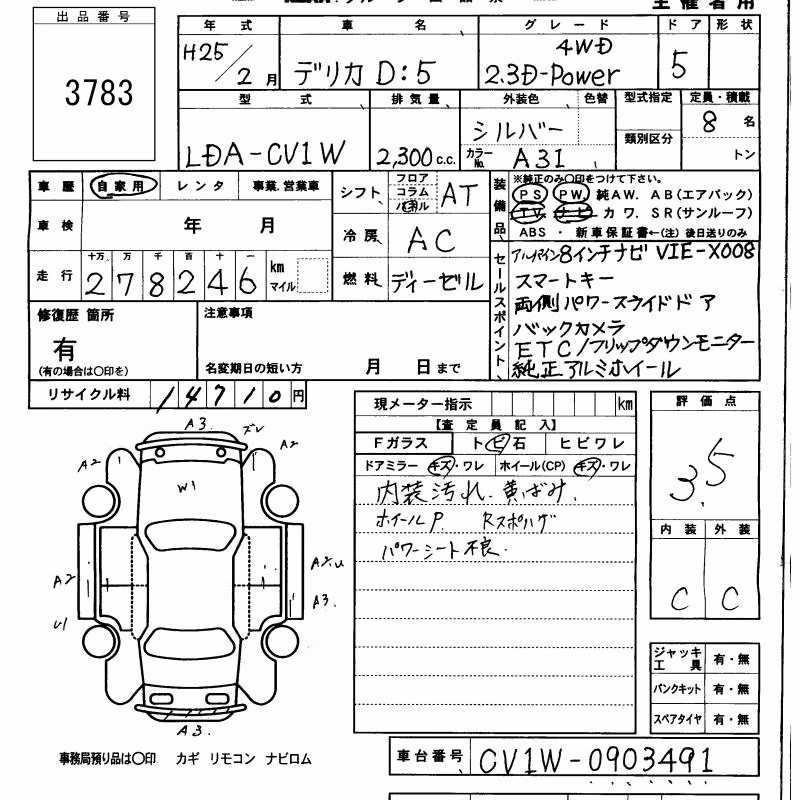 出品番号
3783
年式 車名 グレード ドア 形状
H25/2月 デリカD:5 4WD 2.3D-Power 5
型式 排気量 外装色 色替 型式指定 定員・積載
LDA-CV1W 2,300c.c. シルバー 類別区分 8名
カラーNo. A31 トン
車歴 自家用 レンタ 事業.営業車
シフト フロア コラム AT
車検 年 月
冷房 AC
走行 十万 万 千 百 十 一
278246 km マイル
燃料 ディーゼル
装備品 ※純正のみ〇印をつけて下さい。
PS PW. 純AW. AB(エアバック)
TV. ナビ カワ. SR(サンルーフ)
ABS ・ 新車保証書←(注)後日送りのみ
セールスポイント
アルパイン8インチナビ VIE-X008
スマートキー
両側パワースライドドア
バックカメラ
ETC/フリップダウンモニター
純正アルミホイール
修復歴 箇所
有
(有の場合は〇印を)
注意事項
名変期日の短い方 月 日まで
リサイクル料 14710円
A3. ズレ
A2 A2
W1
A2 A2.U
A3.
U1
A3.
現メーター指示 km
【査定員記入】
Fガラス トビ石 ヒビワレ
ドアミラー キズ・ワレ ホイール(CP) キズ・ワレ
内装汚れ. 黄ばみ.
ホイールP. Rスポハゲ
パワーシート不良.
評価点
3.5
内装 外装
C C
ジャッキ工具 有・無
パンクキット 有・無
スペアタイヤ 有・無
事務局預り品は〇印 カギ リモコン ナビロム
車台番号 CV1W-0903491